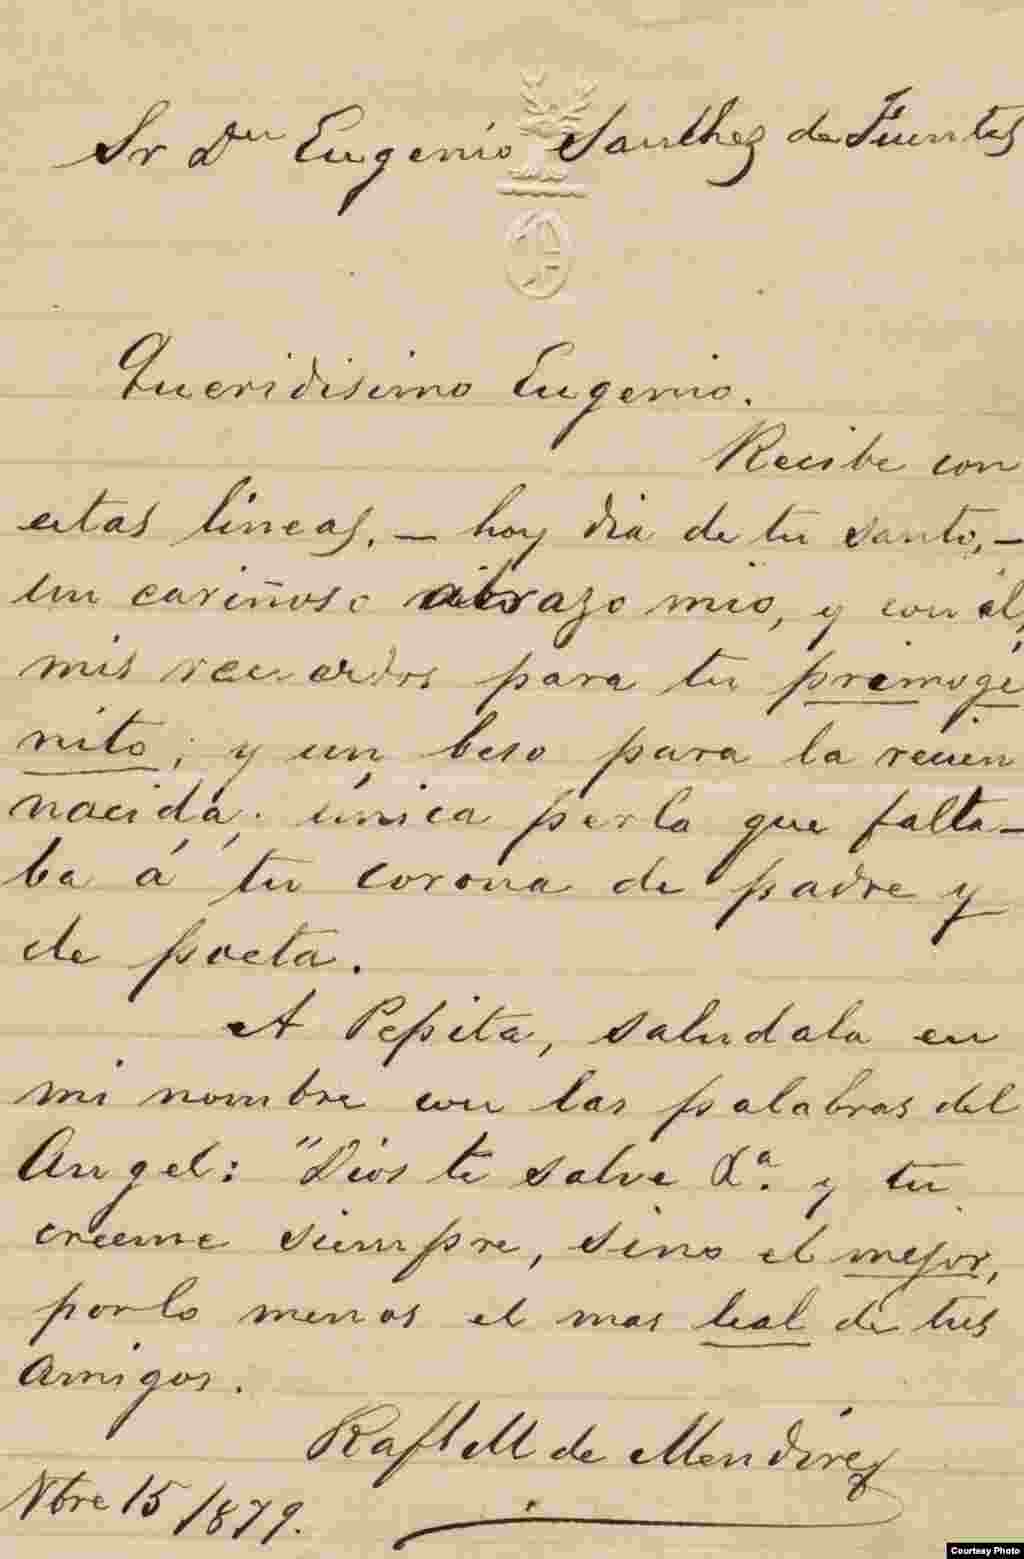 Sr Dn Eugenio Sanchez de Fuentes
Queridisimo Eugenio.
Recibe con
estas lineas, – hoy dia de tu santo, –
un cariñoso abrazo mio, y con él,
mis recuerdos para tu primogé
nito; y un beso para la recien
nacida; única perla que falta–
ba á tu corona de padre y
de poeta.
A Pepita, saludala en
mi nombre con las palabras del
Angel: "Dios te salve Dª. y tu
creeme siempre, sino el mejor,
porlo menos el mas leal de tus
amigos.
Rafl M de Mendive
Nbre 15/879.
Courtesy Photo